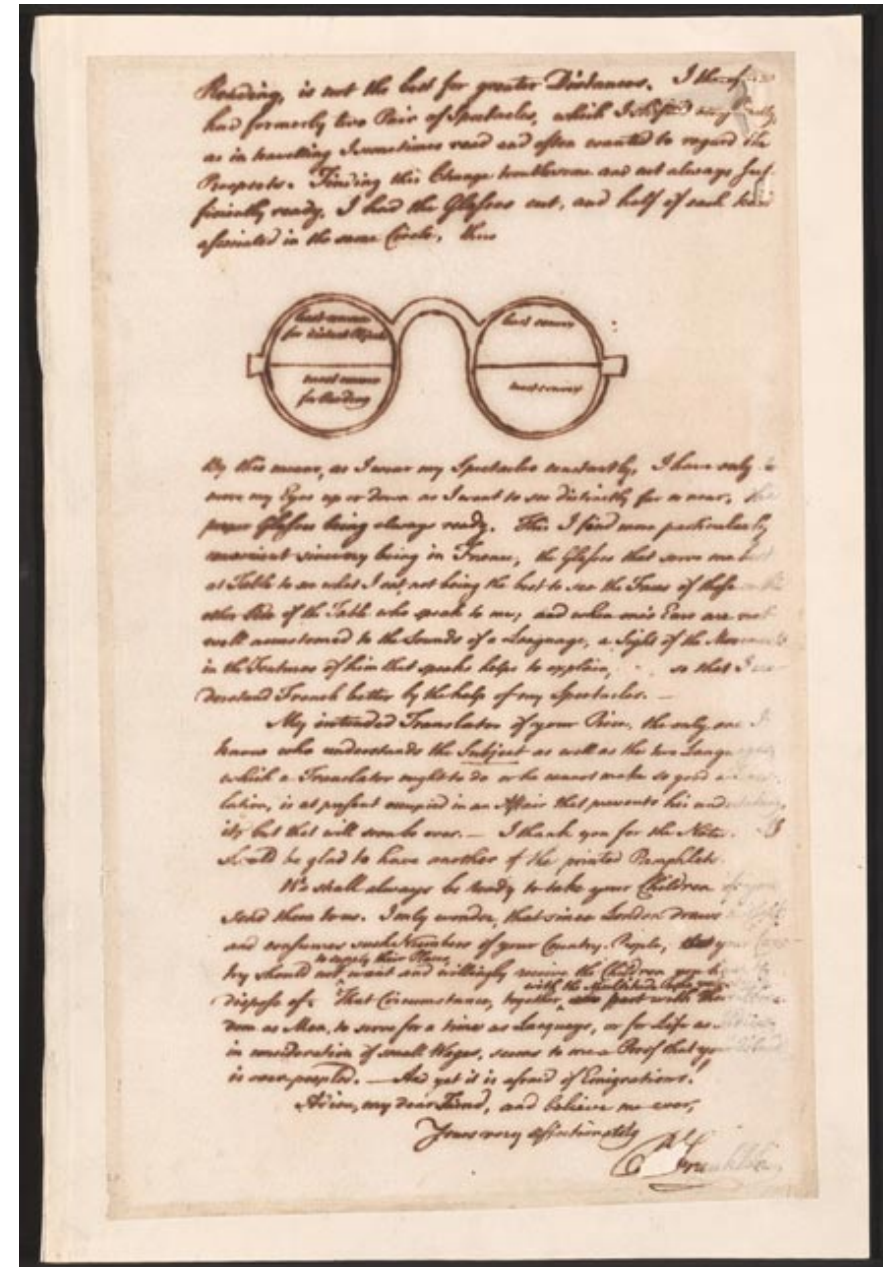 Reading, is not the best for greater Distances. I therefore
had formerly two Pair of Spectacles, which I shifted occasionally,
as in travelling I sometimes read and often wanted to regard the
Prospects. Finding this Change troublesome and not always suf-
ficiently ready, I had the Glasses cut, and half of each kind
associated in the same Circle, thus
least convex
for distant Objects
least convex
most convex
for Reading
most convex
By this means, as I wear my Spectacles constantly, I have only to
move my Eyes up or down as I want to see distinctly far or near, the
proper Glasses being always ready. This I find more particularly
convenient since my being in France, the Glasses that serve me best
at Table to see what I eat, not being the best to see the Faces of those on the
other Side of the Table who speak to me; and when one's Ears are not
well accustomed to the Sounds of a Language, a Sight of the Movements
in the Features of him that speaks helps to explain, so that I un-
derstand French better by the help of my Spectacles. —
My intended Translator of your Piece, the only one I
know who understands the Subject as well as the two Languages,
which a Translator ought to do or he cannot make so good a Trans-
lation, is at present occupied in an Affair that prevents his undertaking
it; but that will soon be over. — I thank you for the Notes. I
should be glad to have another of the printed Pamphlets.
We shall always be ready to take your Children if you
send them to us. I only wonder, that since London draws
and consumes such Numbers of your Country People, that your Coun-
to supply their Places,
try should not want and willingly receive the Children you have to
with the Multitude who
dispose of. That Circumstance, together part with their Free-
dom as Men, to serve for a time as Lacqueys, or for Life as
in consideration of small Wages, seems to me a Proof that your Island
is over-peopled. — And yet it is afraid of Emigrations!
Adieu, my dear Friend, and believe me ever,
Yours very affectionately
Franklin